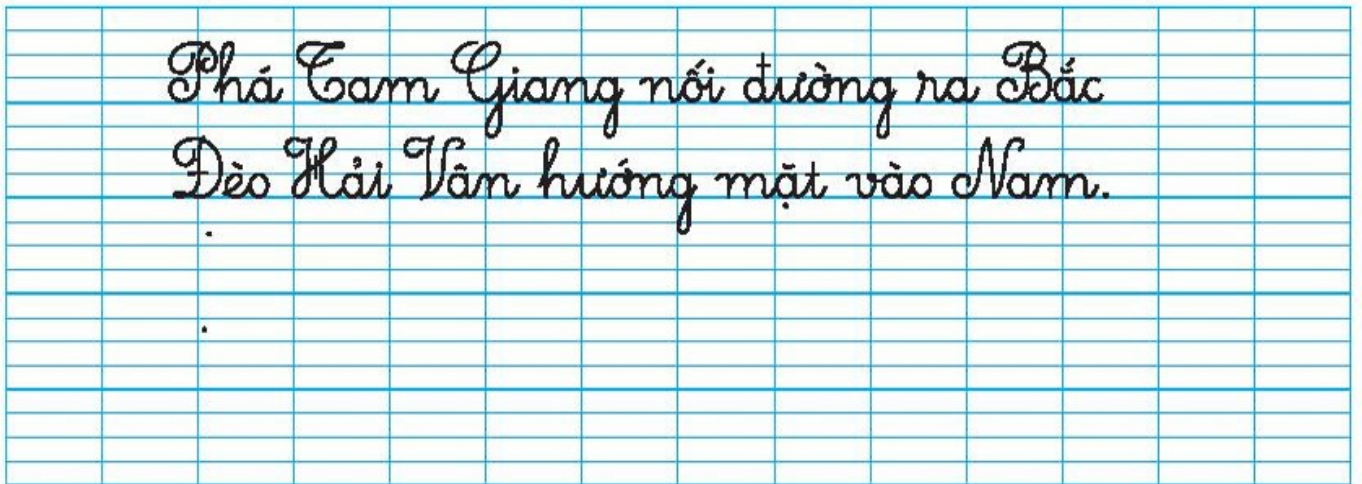 Phá Tam Giang nối đường ra Bắc
Đèo Hải Vân hướng mặt vào Nam.